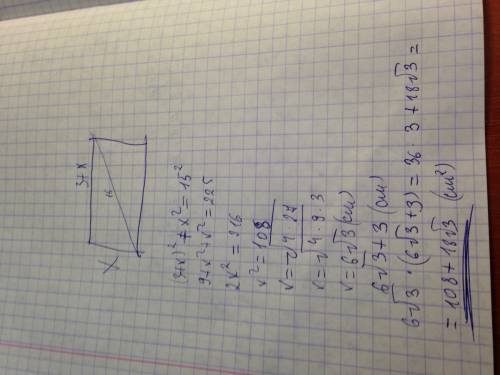 3+x
x
15
(3+x)² + x² = 15²
9+x²+x² = 225
2x² = 216
x² = 108
x = √4·27
x = √4·9·3
x = 6√3 (см)
6√3+3 (см)
6√3 · (6√3+3) = 36·3+18√3 =
= 108+18√3 (см²)